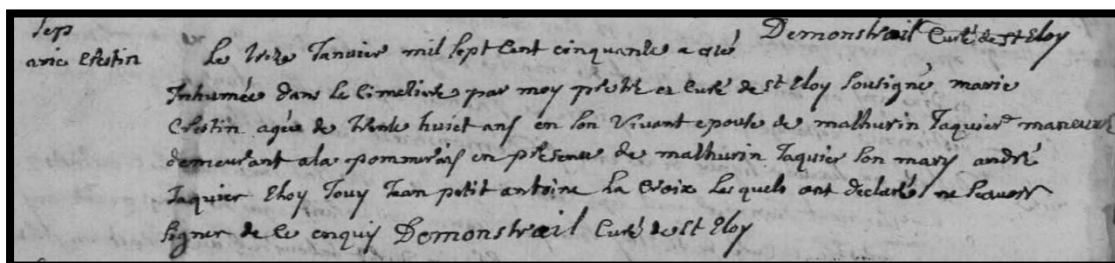 Demonstrail Curé de St Eloy
Sep
arie Celestin
Le treize Janvier mil sept cent cinquante a eté
Inhumée dans le Cimetiere par moy pretre et Curé de St Eloy sousigné marie
Celestin agée de trente huict ans en son vivant epouse de mathurin Jaquier
demeurant a la pommerais en presence de mathurin Jaquier son mary andré
Jaquier Eloy Jouy Jean petit antoine la Croix lesquels ont declarés ne scavoir
signer de ce enquis Demonstrail Curé de St Eloy